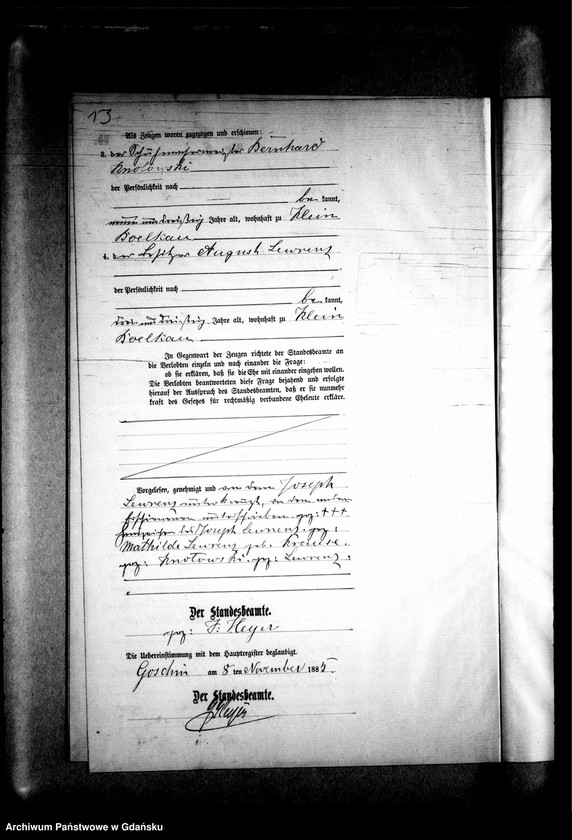 13
Als Zeugen waren zugezogen und erschienen:
3. der Schuhmachermeister Bernhard
Knotowski
der Persönlichkeit nach
bekannt,
neun und dreißig Jahre alt, wohnhaft zu Klein
Boelkau
4. der Besitzer August Lewrenz
der Persönlichkeit nach
bekannt,
drei und dreißig Jahre alt, wohnhaft zu Klein
Boelkau.
In Gegenwart der Zeugen richtete der Standesbeamte an
die Verlobten einzeln und nach einander die Frage:
ob sie erklären, daß sie die Ehe mit einander eingehen wollen.
Die Verlobten beantworteten diese Frage bejahend und erfolgte
hierauf der Ausspruch des Standesbeamten, daß er sie nunmehr
kraft des Gesetzes für rechtmäßig verbundene Eheleute erkläre.
Vorgelesen, genehmigt und von dem Joseph
Lewrenz unterkreuzt, von den andern
Erschienenen unterschrieben. gez: +++
Handzeichen des Joseph Lewrenz. gez:
Mathilde Lewrenz geb. Krause.
gez: Knotowski. gez: Lewrenz.
Der Standesbeamte.
gez: F. Heyer
Die Uebereinstimmung mit dem Hauptregister beglaubigt.
Goschin am 8 ten November 188
Der Standesbeamte.
Heyer
Archiwum Państwowe w Gdańsku